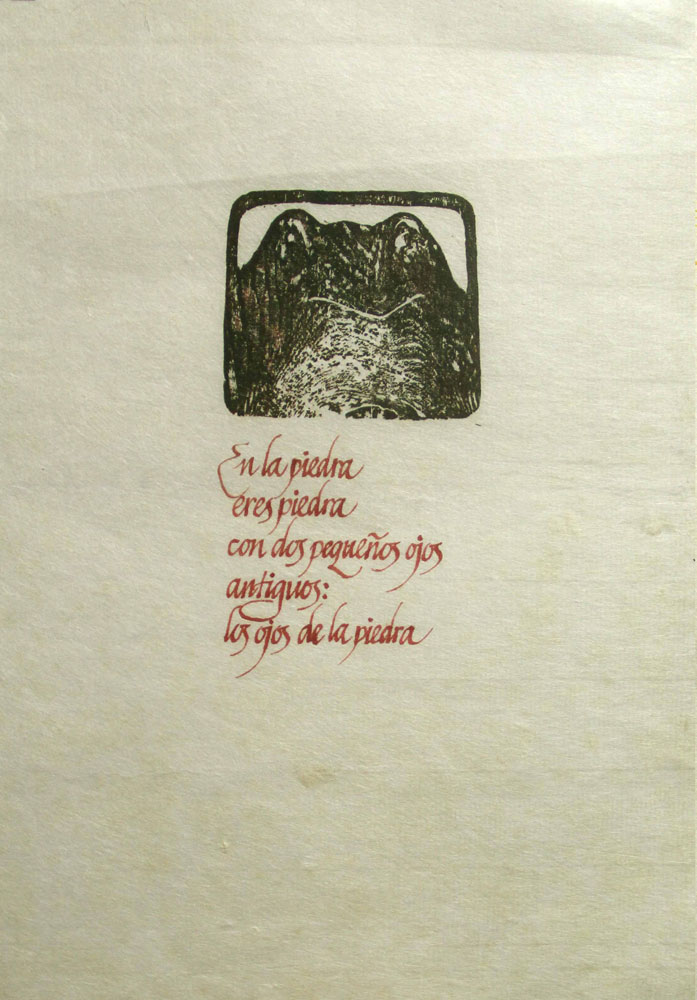 En la piedra
eres piedra
con dos pequeños ojos
antiguos:
los ojos de la piedra